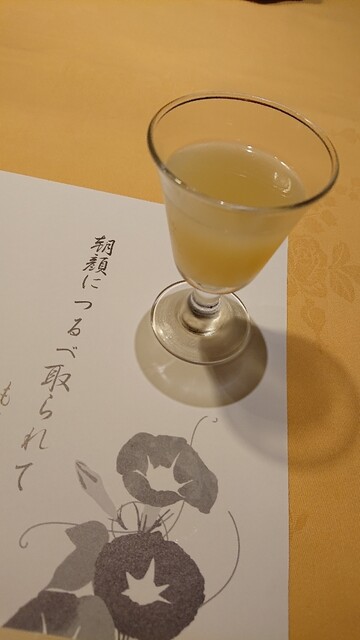 朝顔につるべ取られて
も